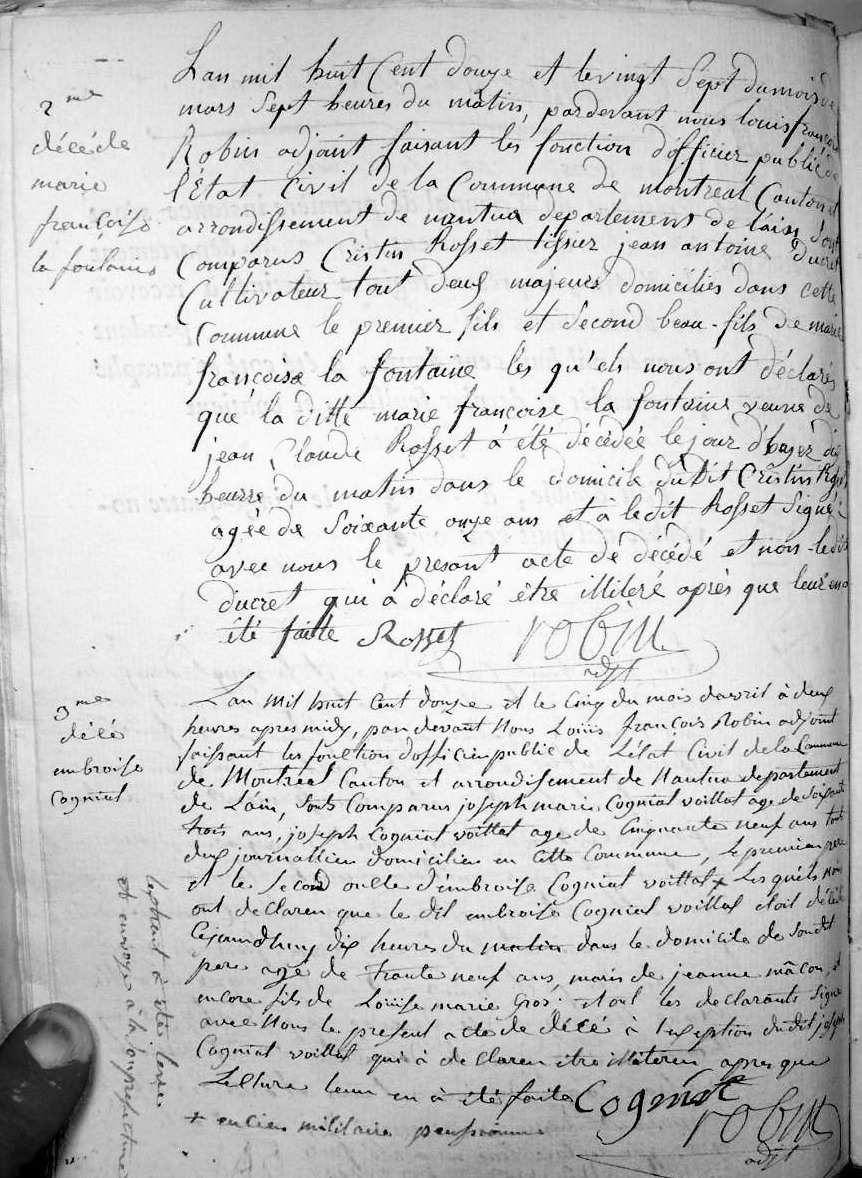 2me
décé de
marie
françoise
la fontaine
L'an mil huit Cent douze et le vingt Sept du mois de
mars Sept heures du matin, pardevant nous louis françois
Robin adjoint faisant les fonction d'officier public de
l'État Civil de la Commune de montreal Canton et
arrondissement de nantua departement de l'ain Sont
Comparus Cristin Rosset tissier jean antoine Ducret
Cultivateur tout deux majeurs domiciliés dans cette
Commune le premier fils et Second beau-fils de marie
françoise la fontaine les qu'els nous ont déclarés
que la ditte marie françoise la fontaine veuve de
jean Claude Rosset à été décédée le jour d'hyer dix
heurre du matin dans le domicile du Dit Cristin Rosset
agée de Soixante onze ans et à le dit Rosset Signé
avec nous le presant acte de décédé et non-le dit
Ducret qui a déclaré être illiteré après que leur en a
été faitte Rosset robin
adjt
3me
décé
embroise
Cogniat
L'an mil huit Cent douze et le Cinq du mois d'avril à deux
heures apres midy, par devant Nous Loüis françois Robin adjoint
faissant les fonction d'officier public de L'état Civil de la Commune
de Montréal Canton et arrondissement de Nantua departement
de Lain, Sont Comparus joseph marie Cogniat voillat age de Soixante
trois ans, joseph Cogniat voillat age de Cinquante neuf ans tout
deux journallier domicilier en Cette Commune, Le premier pere
et le Second oncle d'embroise Cogniat voillat + Les quéls nous
ont declarer que le dit embroise Cogniat voillat etoit décédé
Cejourdhuy dix heures du matin dans le domicile de Sondit
pere agé de trante neuf ans, maris de jeanne mâcon, et
encore fils de Loüise marie gros. et ont les declarants Signé
avec Nous le present acte de décé à l'exception du dit joseph
Cogniat voillat qui à declarer être illiterer apres que
Lecture leur en à été faite Cogniat robin
adjt
+ encien militaire penssionné
lextrait à été levé
et envoye à la souprefecture